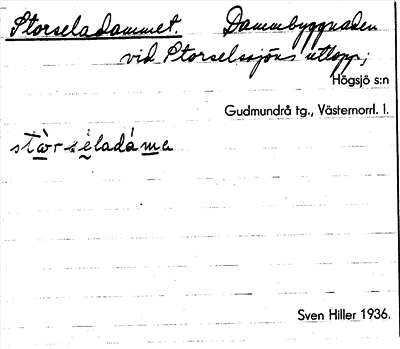 Storseladammet. Dammbyggnaden
vid Storselssjöns utlopp;
Högsjö s:n
Gudmundrå tg., Västernorrl. l.
stòrsèladáma
Sven Hiller 1936.